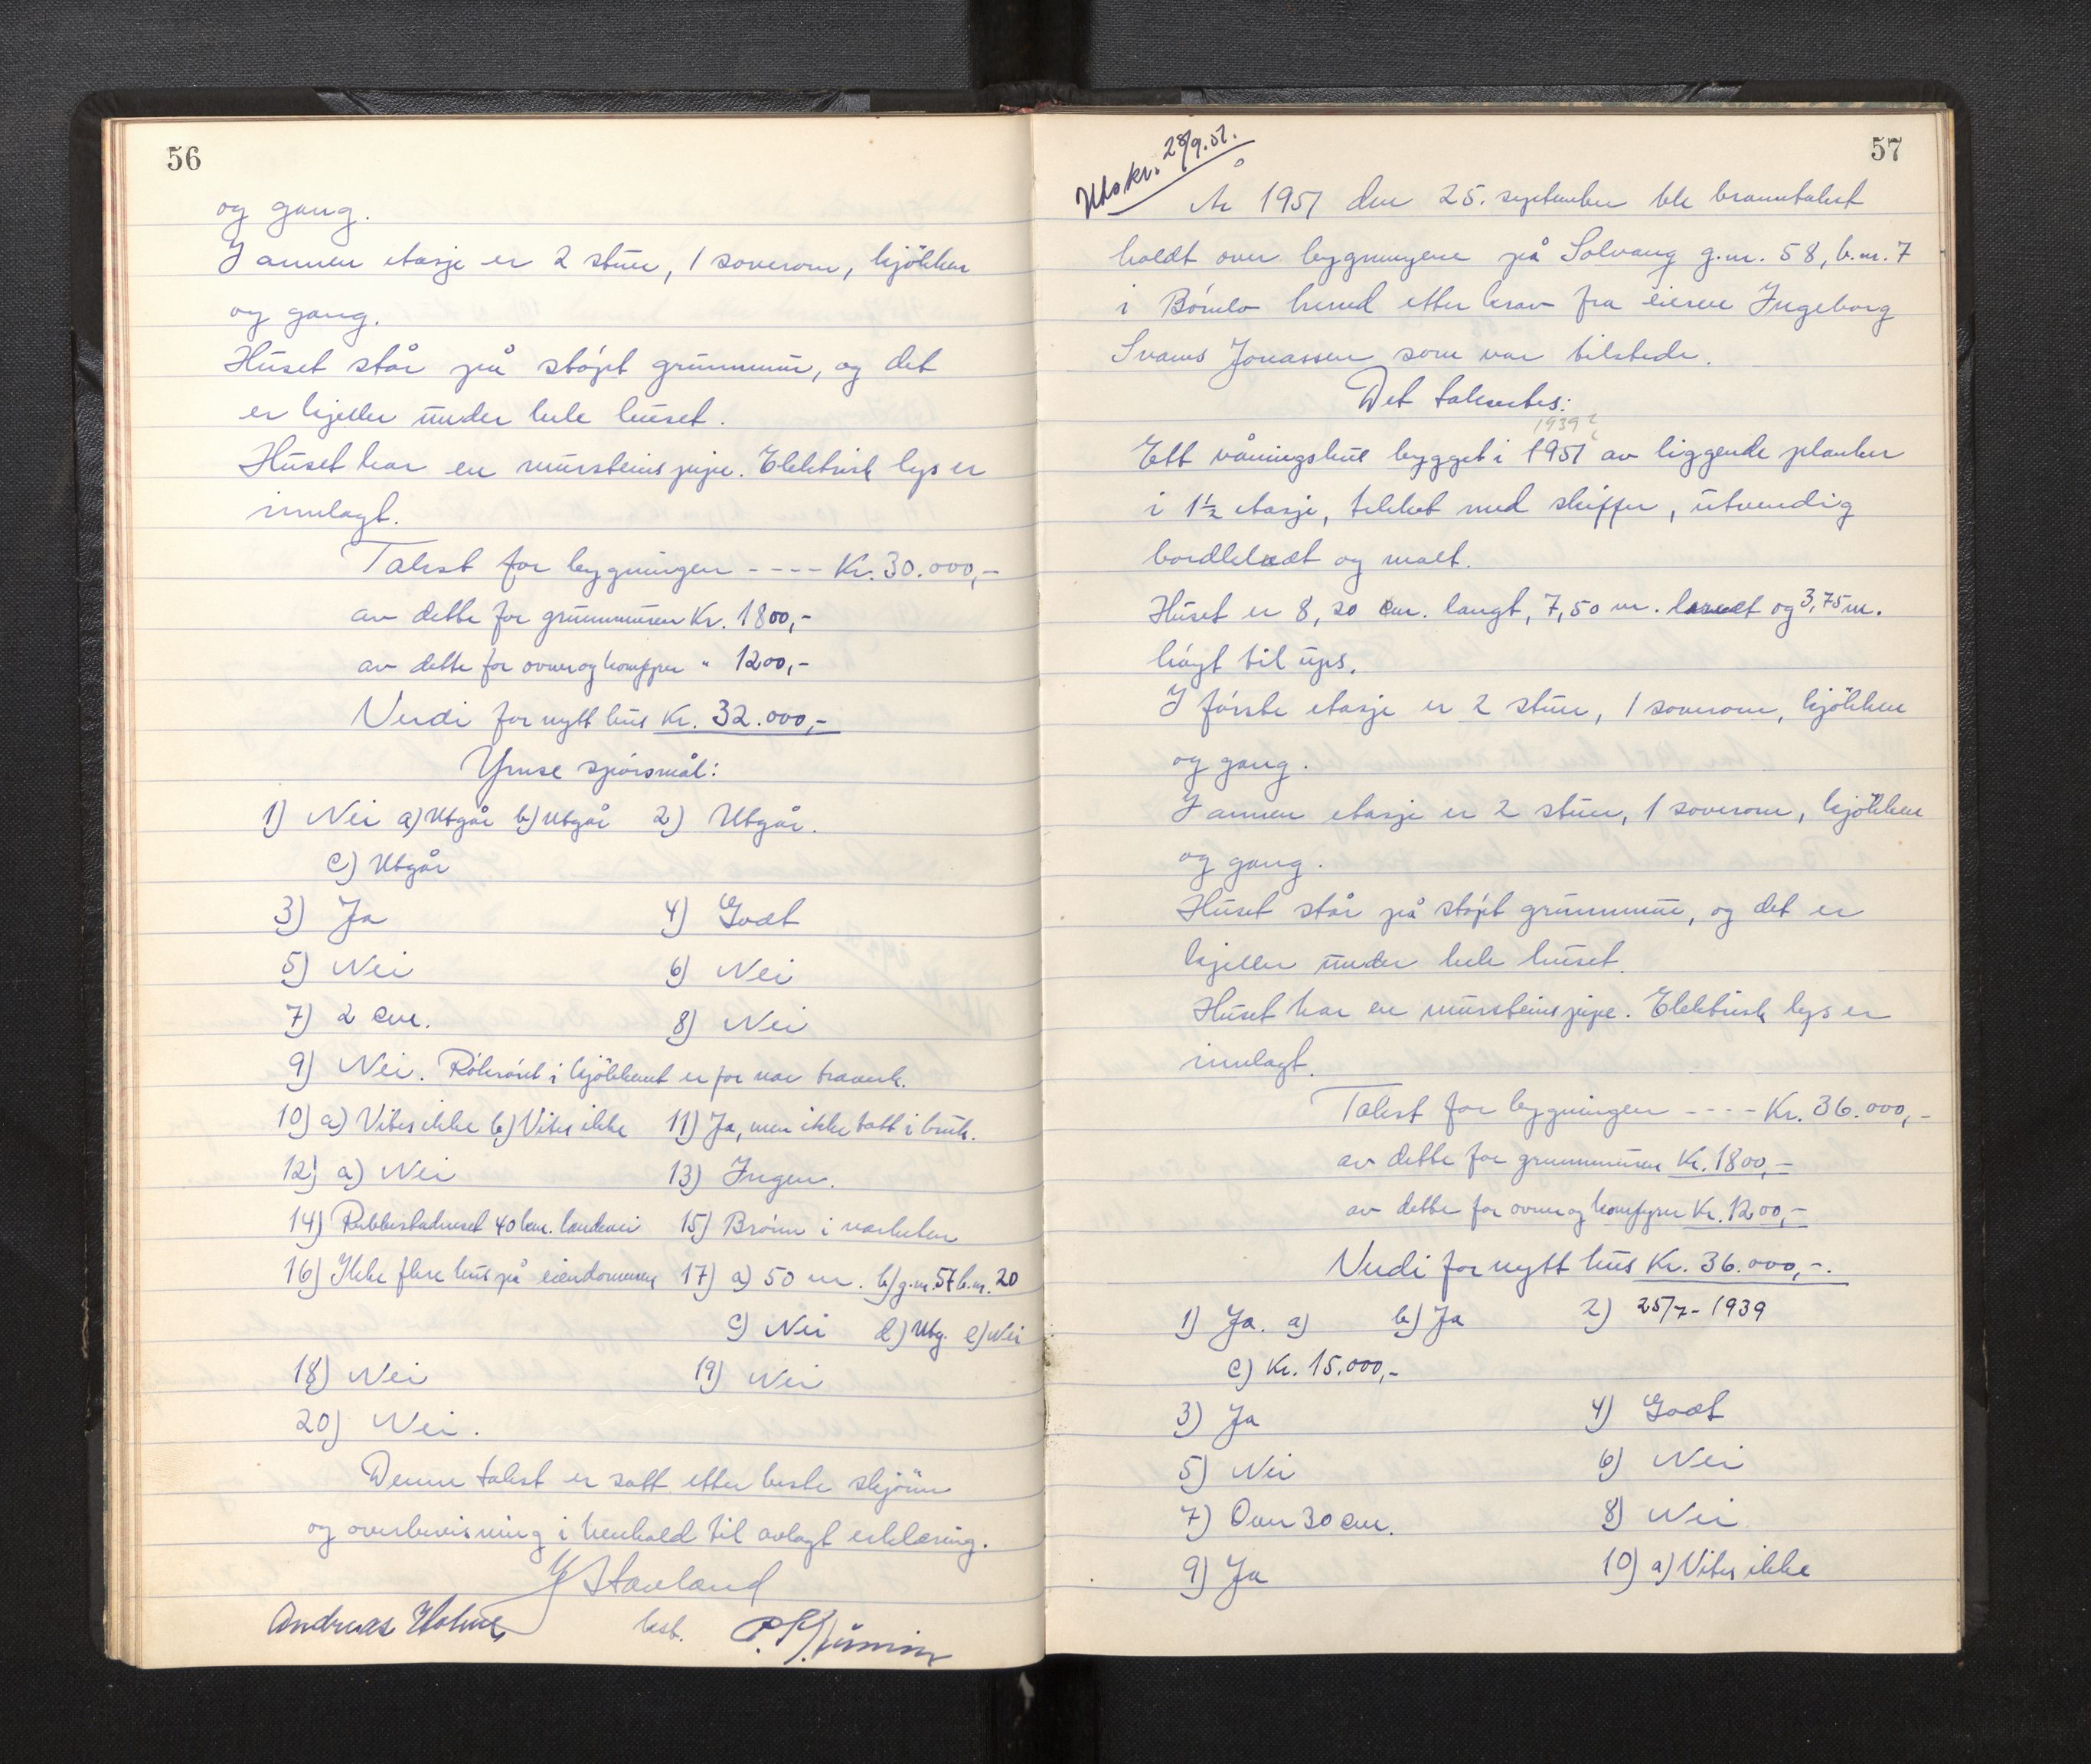 56
og gang.
I annen etasje er 2 stuer, 1 soverom, kjökken
og gang.
Huset står på støpt grunnmur, og det
er kjeller under hele huset.
Huset har en mursteinspipe. Elektrisk lys er
innlagt.
Takst for bygningen ---- Kr. 30.000,-
av dette for grunnmuren Kr. 1800,-
av dette for ovner og komfyrer " 1200,-
Verdi for nytt hus Kr. 32.000,-
Ymse spørsmål:
1) Nei a) Utgår b) Utgår 2) Utgår.
c) Utgår
3) Ja 4) Godt
5) Nei 6) Nei
7) 2 cm. 8) Nei
9) Nei. Rökröret i kjökkenet er for nær traverk.
10) a) Vites ikke b) Vites ikke 11) Ja, men ikke tatt i bruk.
12) a) Nei 13) Ingen.
14) Rubbestadneset 40 km. landevei 15) Brønn i nærheten
16) Ikke flere hus på eiendommen 17) a) 50 m. b) g.nr. 57 b.nr. 20
c) Nei d) Utg. e) Nei
18) Nei 19) Nei
20) Nei.
Denne takst er satt etter beste skjönn
og overbevisning i henhold til avlagt erklæring.
Stavland
Andreas Holme best.
57
Utskr. 28/9.51.
År 1951 den 25. september ble branntakst
holdt over bygningene på Solvang g.nr. 58, b.nr. 7
i Bømlo herred etter krav fra eieren Ingeborg
Svanes Jonassen som var tilstede.
Det taksertes:
1939?
Ett våningshus bygget i 1951 av liggende planker
i 1½ etasje, tekket med skiffer, utvendig
bordkledt og malt.
Huset er 8,20 cm. langt, 7,50 m. bredt og 3,75 m.
høgt til ups.
I første etasje er 2 stuer, 1 soverom, kjökken
og gang.
I annen etasje er 2 stuer, 1 soverom, kjökken
og gang.
Huset står på støpt grunnmur, og det er
kjeller under hele huset.
Huset har en mursteinspipe. Elektrisk lys er
innlagt.
Takst for bygningen ---- Kr. 36.000,-
av dette for grunnmuren Kr. 1800,-
av dette for ovner og komfyrer Kr. 1200,-
Verdi for nytt hus Kr. 36.000,-.
1) Ja. a) b) Ja 2) 25/7-1939
c) Kr. 15.000,-
3) Ja 4) Godt
5) Nei 6) Nei
7) Over 30 cm. 8) Nei
9) Ja 10) a) Vites ikke